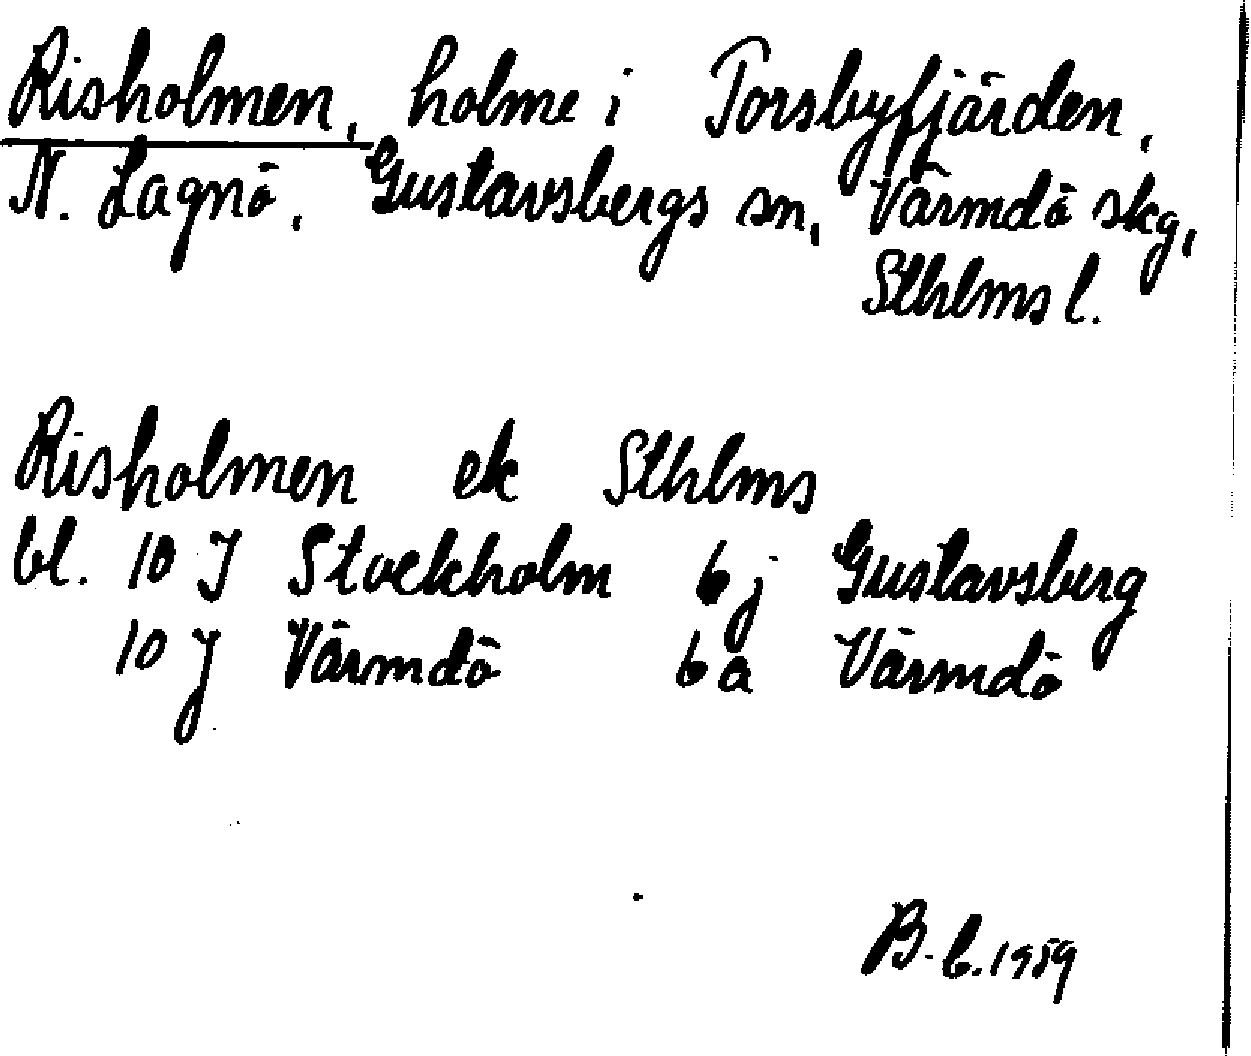 Risholmen, holme i Torsbyfjärden,
N. Lagnö, Gustavsbergs sn, Värmdö skg,
Sthlms l.
Risholmen ek Sthlms
bl. 10 J Stockholm 6 j Gustavsberg
10 J Värmdö 6 a Värmdö
B-b. 1959